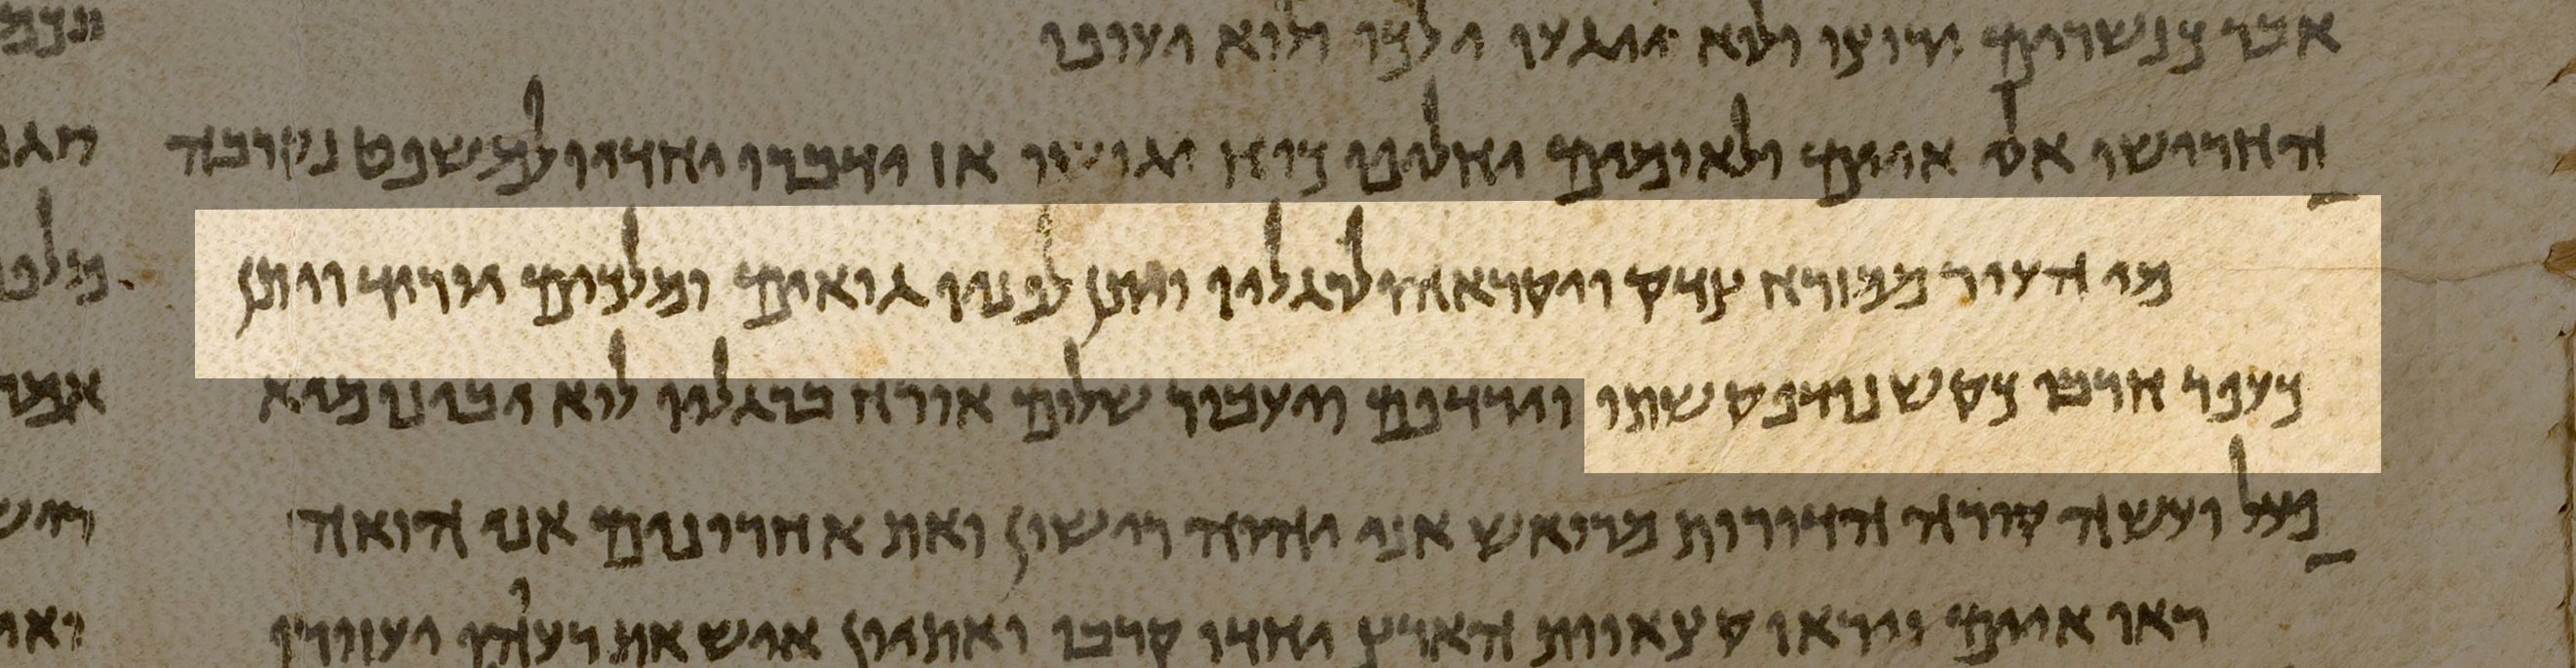 אבר כנשרים ירוצו ולוא ייגעו ילכו ולוא יעופו
החרישו אלי איים ולאומים יחליפו כוח יגושו אז ידברו יחדיו למשפט נקרבה
מי העיר ממזרח צדק ויקראהו לרגליו ויתן לפניו גואים ומלכים יוריד ויתן
כעפר חרבו כקש נודף קשתו וירדופם ויעבור שלום אורח ברגליו לוא יבינו מיא
פעל ועשה קורה הדורות מרואש אני יהוה רישון ואת אחרונים אני הואה
ראו איים ויראו קצאוות הארץ יחדו קרבו ואתיון איש את רעהו יעזורו